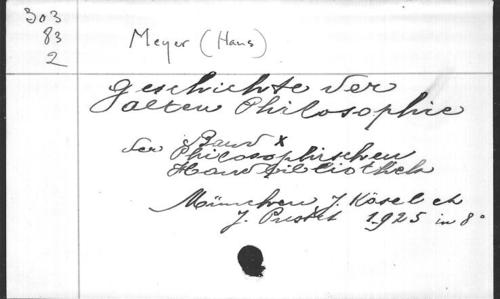 303
83
2
Meyer (Hans)
Geschichte der
alten Philosophie
Band X
der Philosophischen
Handbibliothek
München, J. Kösel et
J. Pustet 1925 in 8°